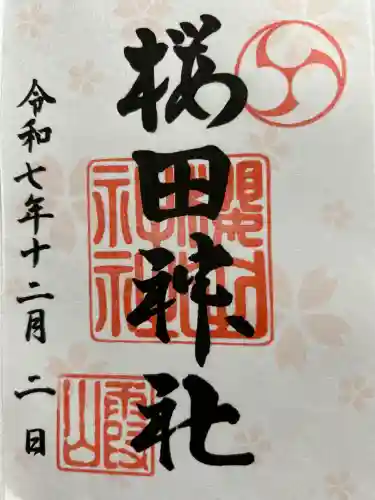 桜田神社
令和七年十二月二日
霞山